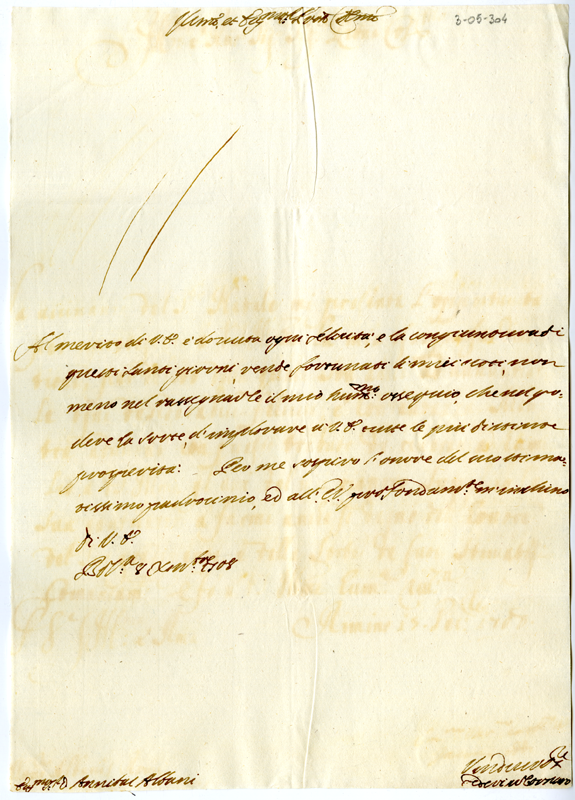 Illmo. et
3-05-304
Al merito di V.E. è dovuta ogni felicità, e la congiuntura di
questi santi giorni rende fortunati li miei voti non
meno nel rassegnarle il mio humo. ossequio, che nel go-
dere la sorte, d'implorare a V.E. tutte le più distinte
prosperità: Per me sospiro l'onore del suo stima-
tissimo padrocinio, ed all: profondamte. m'inchino
di V.E.
8 Xmbre 1708
Annibal Albani